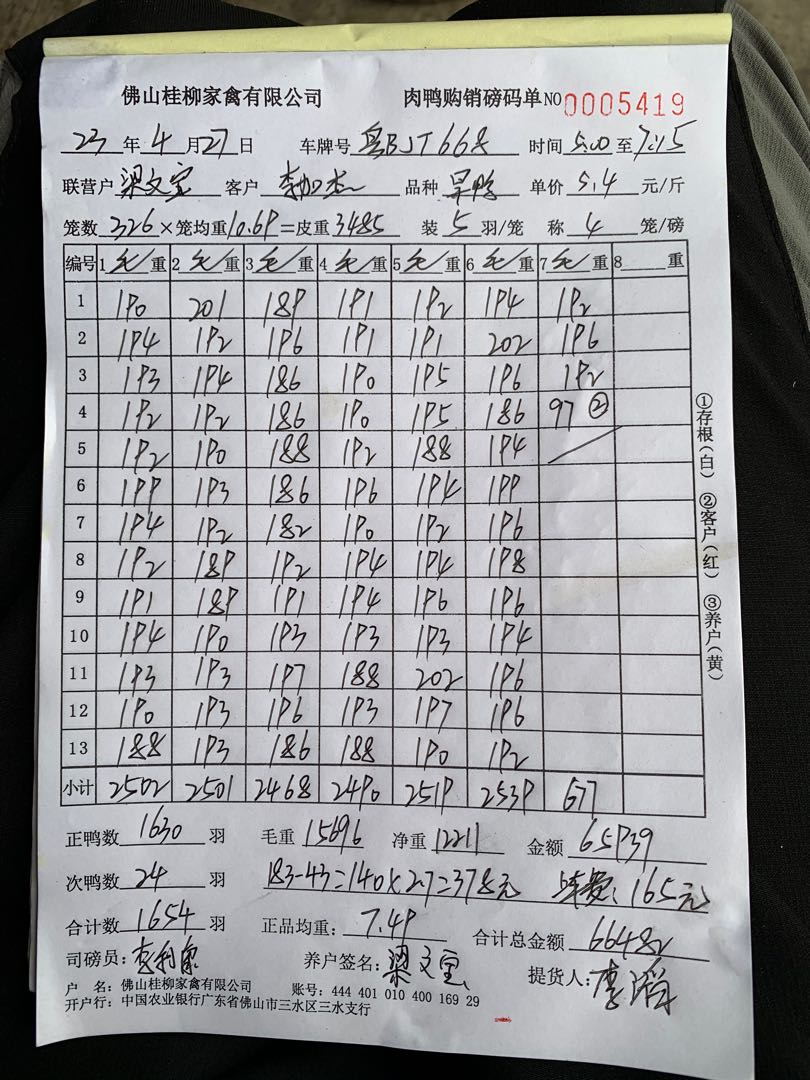 佛山桂柳家禽有限公司 肉鸭购销磅码单 NO 0005419
23 年 4 月 27 日 车牌号 粤BJT668 时间 5:00 至 7:15
联营户 梁文宝 客户 李加杰 品种 旱鸭 单价 5.4 元/斤
笼数 326 × 笼均重 10.69 = 皮重 3485 装 5 羽/笼 称 4 笼/磅
编号 1 毛 重 2 毛 重 3 毛 重 4 毛 重 5 毛 重 6 毛 重 7 毛 重 8 重
1 190 201 189 191 192 194 192
2 194 192 196 191 191 202 196
3 193 194 186 190 195 196 192
4 192 192 186 190 195 186 97 ②
5 192 190 188 192 188 194
6 199 193 186 196 194 199
7 194 192 182 190 192 196
8 192 189 192 194 194 198
9 191 189 191 194 196 196
10 194 190 193 193 193 194
11 193 193 197 188 202 196
12 190 193 196 193 197 196
13 188 193 186 188 190 192
小计 2502 2501 2468 2490 2519 2539 677
正鸭数 1630 羽 毛重 15696 净重 12211 金额 65939
次鸭数 24 羽 183-43=140×2.7=378元 车费:165元
合计数 1654 羽 正品均重: 7.49 合计总金额 66482
司磅员: 李利康 养户签名: 梁文宝 提货人: 李滔
户 名: 佛山桂柳家禽有限公司 账号: 444 401 010 400 169 29
开户行: 中国农业银行广东省佛山市三水区三水支行
①存根(白) ②客户(红) ③养户(黄)